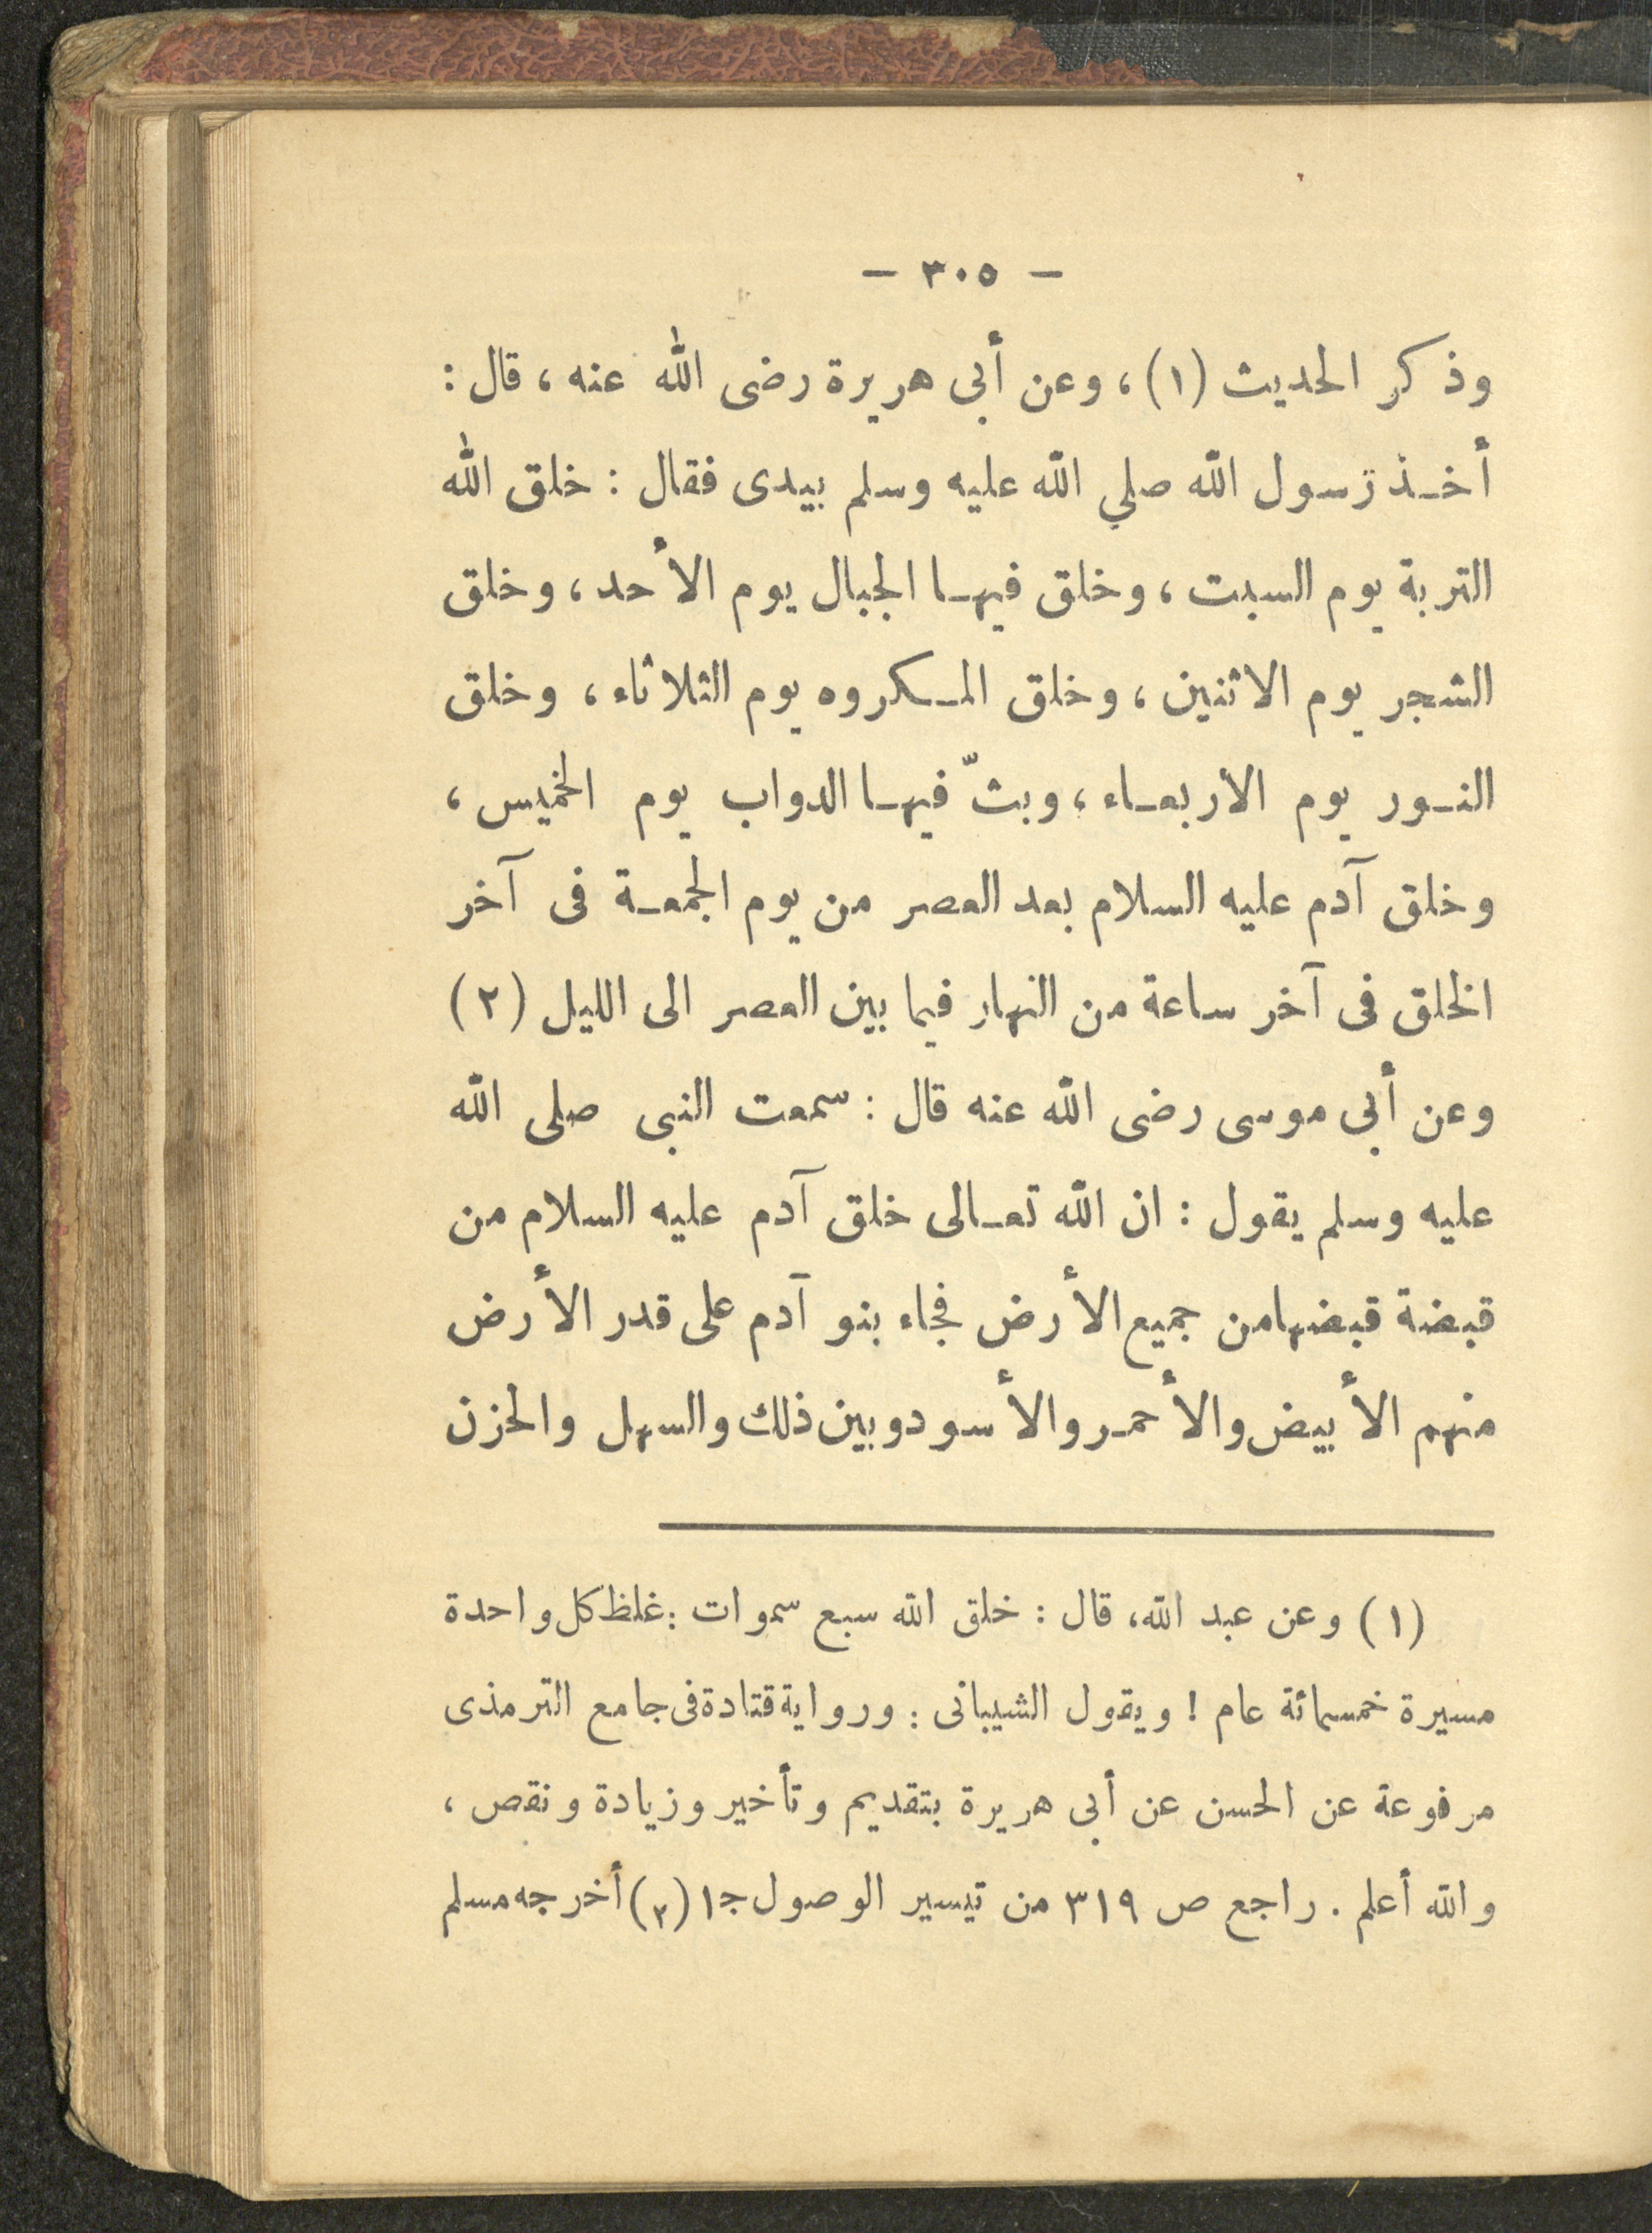 — ٣٠٥ —
وذكر الحديث (١)، وعن أبى هريرة رضى الله عنه، قال:
أخذ رسول الله صلي الله عليه وسلم بيدى فقال: خلق الله
التربة يوم السبت، وخلق فيها الجبال يوم الأحد، وخلق
الشجر يوم الاثنين، وخلق المكروه يوم الثلاثاء، وخلق
النور يوم الاربعاء، وبثّ فيها الدواب يوم الخميس،
وخلق آدم عليه السلام بعد العصر من يوم الجمعة فى آخر
الخلق فى آخر ساعة من النهار فيما بين العصر الى الليل (٢)
وعن أبى موسى رضى الله عنه قال: سمعت النبى صلى الله
عليه وسلم يقول: ان الله تعالى خلق آدم عليه السلام من
قبضة قبضها من جميع الأرض فجاء بنو آدم على قدر الأرض
منهم الأبيض والأحمر والأسود وبين ذلك والسهل والحزن
(١) وعن عبد الله، قال: خلق الله سبع سموات: غلظ كل واحدة
مسيرة خمسمائة عام! ويقول الشيبانى: ورواية قتادة فى جامع الترمذى
مرفوعة عن الحسن عن أبى هريرة بتقديم وتأخير وزيادة ونقص،
والله أعلم. راجع ص ٣١٩ من تيسير الوصول ج١ (٢) أخرجه مسلم